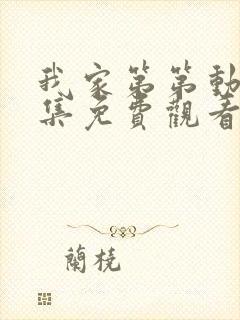 我家第第動
集免費觀看
蘭橈